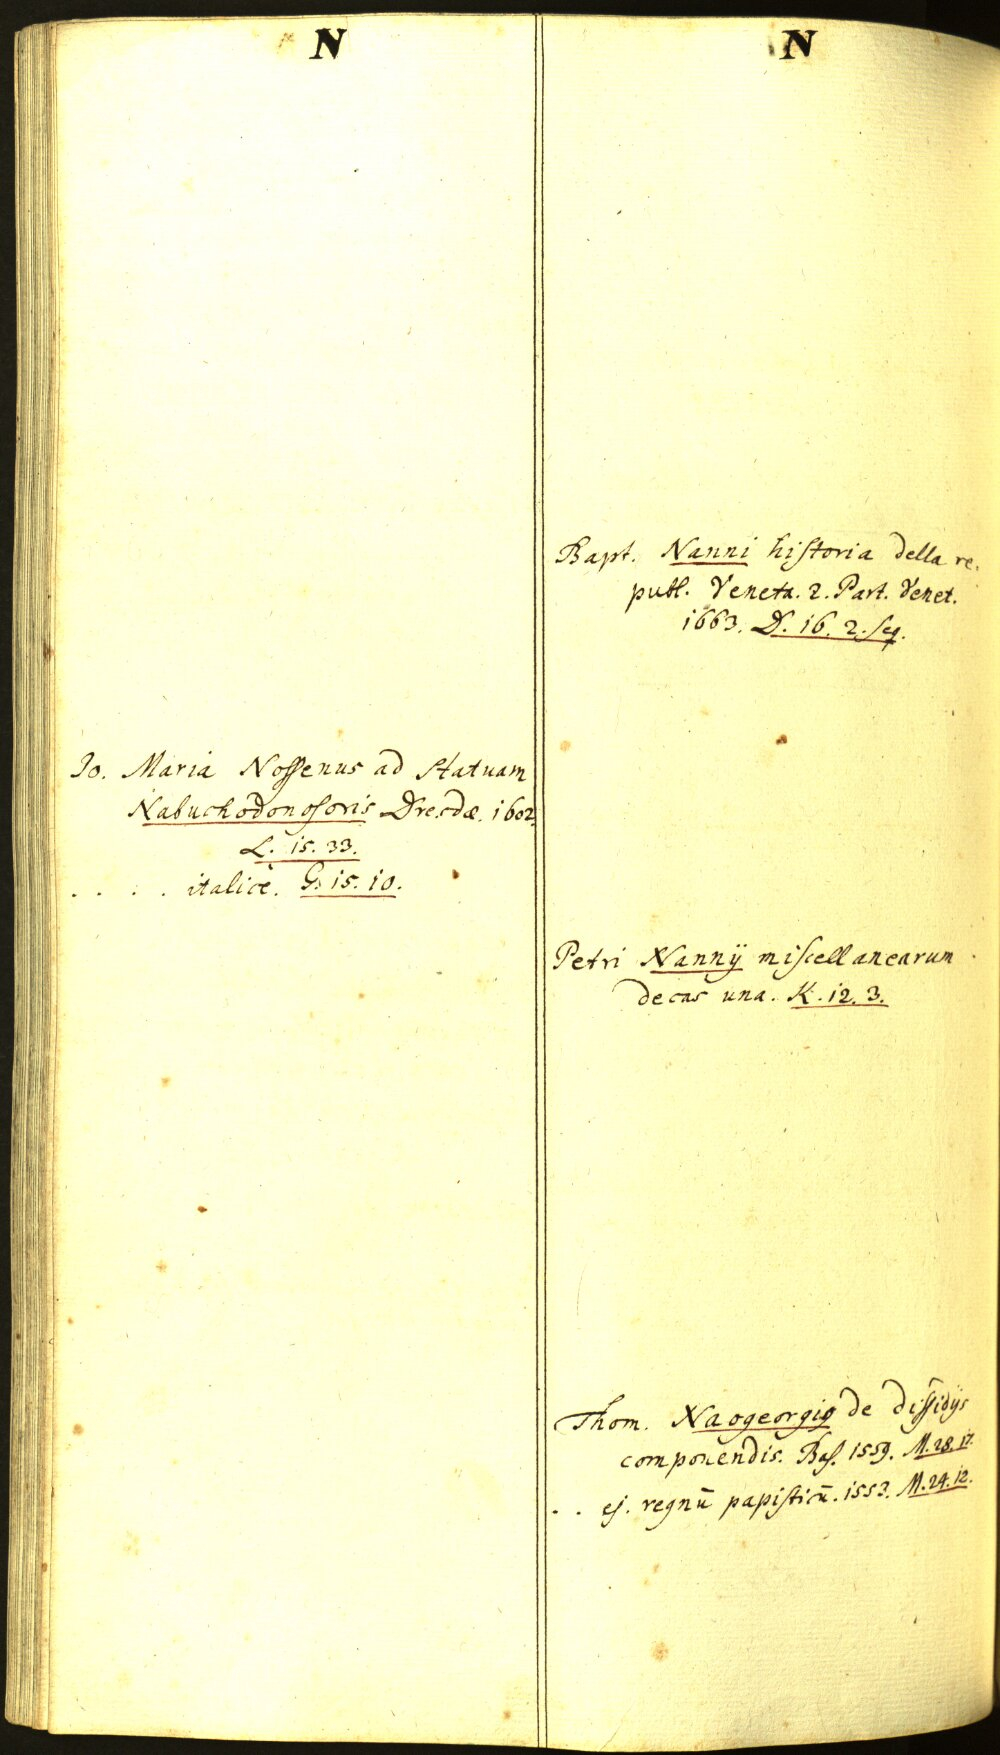 N
Jo. Maria Nossenus ad statuam
Nabuchodonosoris Dresdæ. 1602.
L. 15. 33.
. . . . italicè. G. 15. 10.
N
Bapt. Nanni historia della re-
publ. Veneta. 2. Part. Venet.
1663. D. 16. 2. seq.
Petri Nannij miscellanearum
decas una. K. 12. 3.
Thom. Naogeorgi9 de dissidijs
componendis. Bas. 1559. M. 28. 17.
. . ej. regnū papisticū. 1553. M. 24. 12.